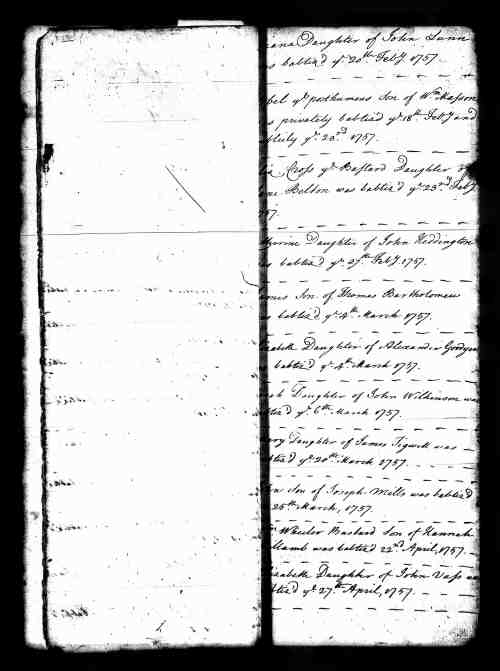 iana Daughter of John Lunn
s babtiz'd yᵉ 20th Feby. 1757.
bel yᵉ posthumus Son of Wm Masson
s privately babtiz'd yᵉ 18th Feby and
blickly yᵉ 20d 1757.
Cross yᵉ Bastard Daughter of
ane Belton was babtiz'd yᵉ 23d Feby
757.
therine Daughter of John Keddington
s babtiz'd yᵉ 27th Feby. 1757.
ames Son of Thomas Bartholomew
babtiz'd yᵉ 4th March 1757.
izabeth Daughter of Alexander Goodyear
babtiz'd yᵉ 4th March 1757.
ah Daughter of John Wilkinson was
tiz'd yᵉ 6th March 1757.
ary Daughter of James Tigwell was
btiz'd yᵉ 20th March 1757.
hn Son of Joseph Mills was babtiz'd
25th March, 1757.
Wheeler Bastard Son of Hannah
llamb was babtiz'd 22d April, 1757.
izabeth Daughter of John Vass was
btiz'd yᵉ 27th April, 1757.